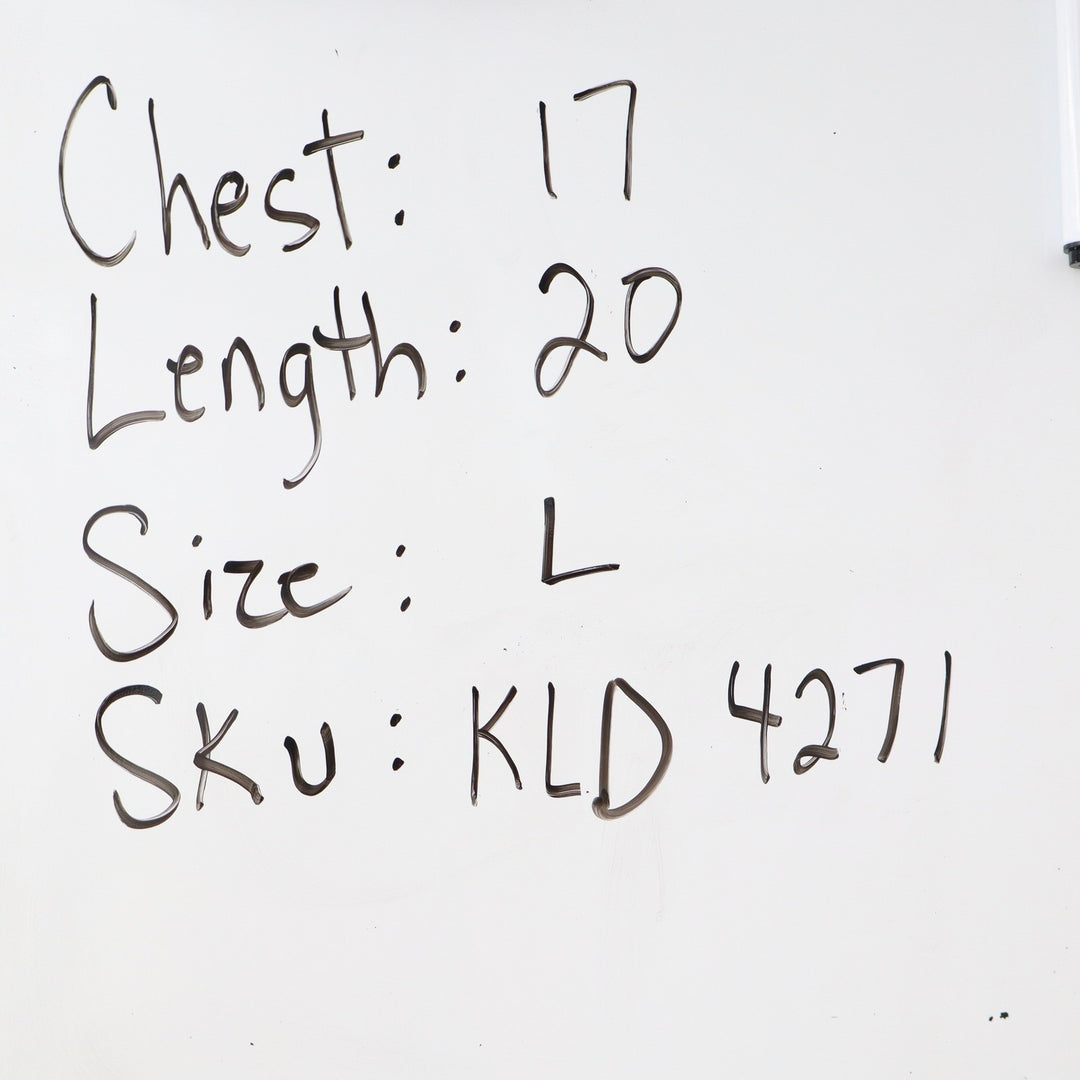 Chest: 17
Length: 20
Size: L
SKU: KLD 4271